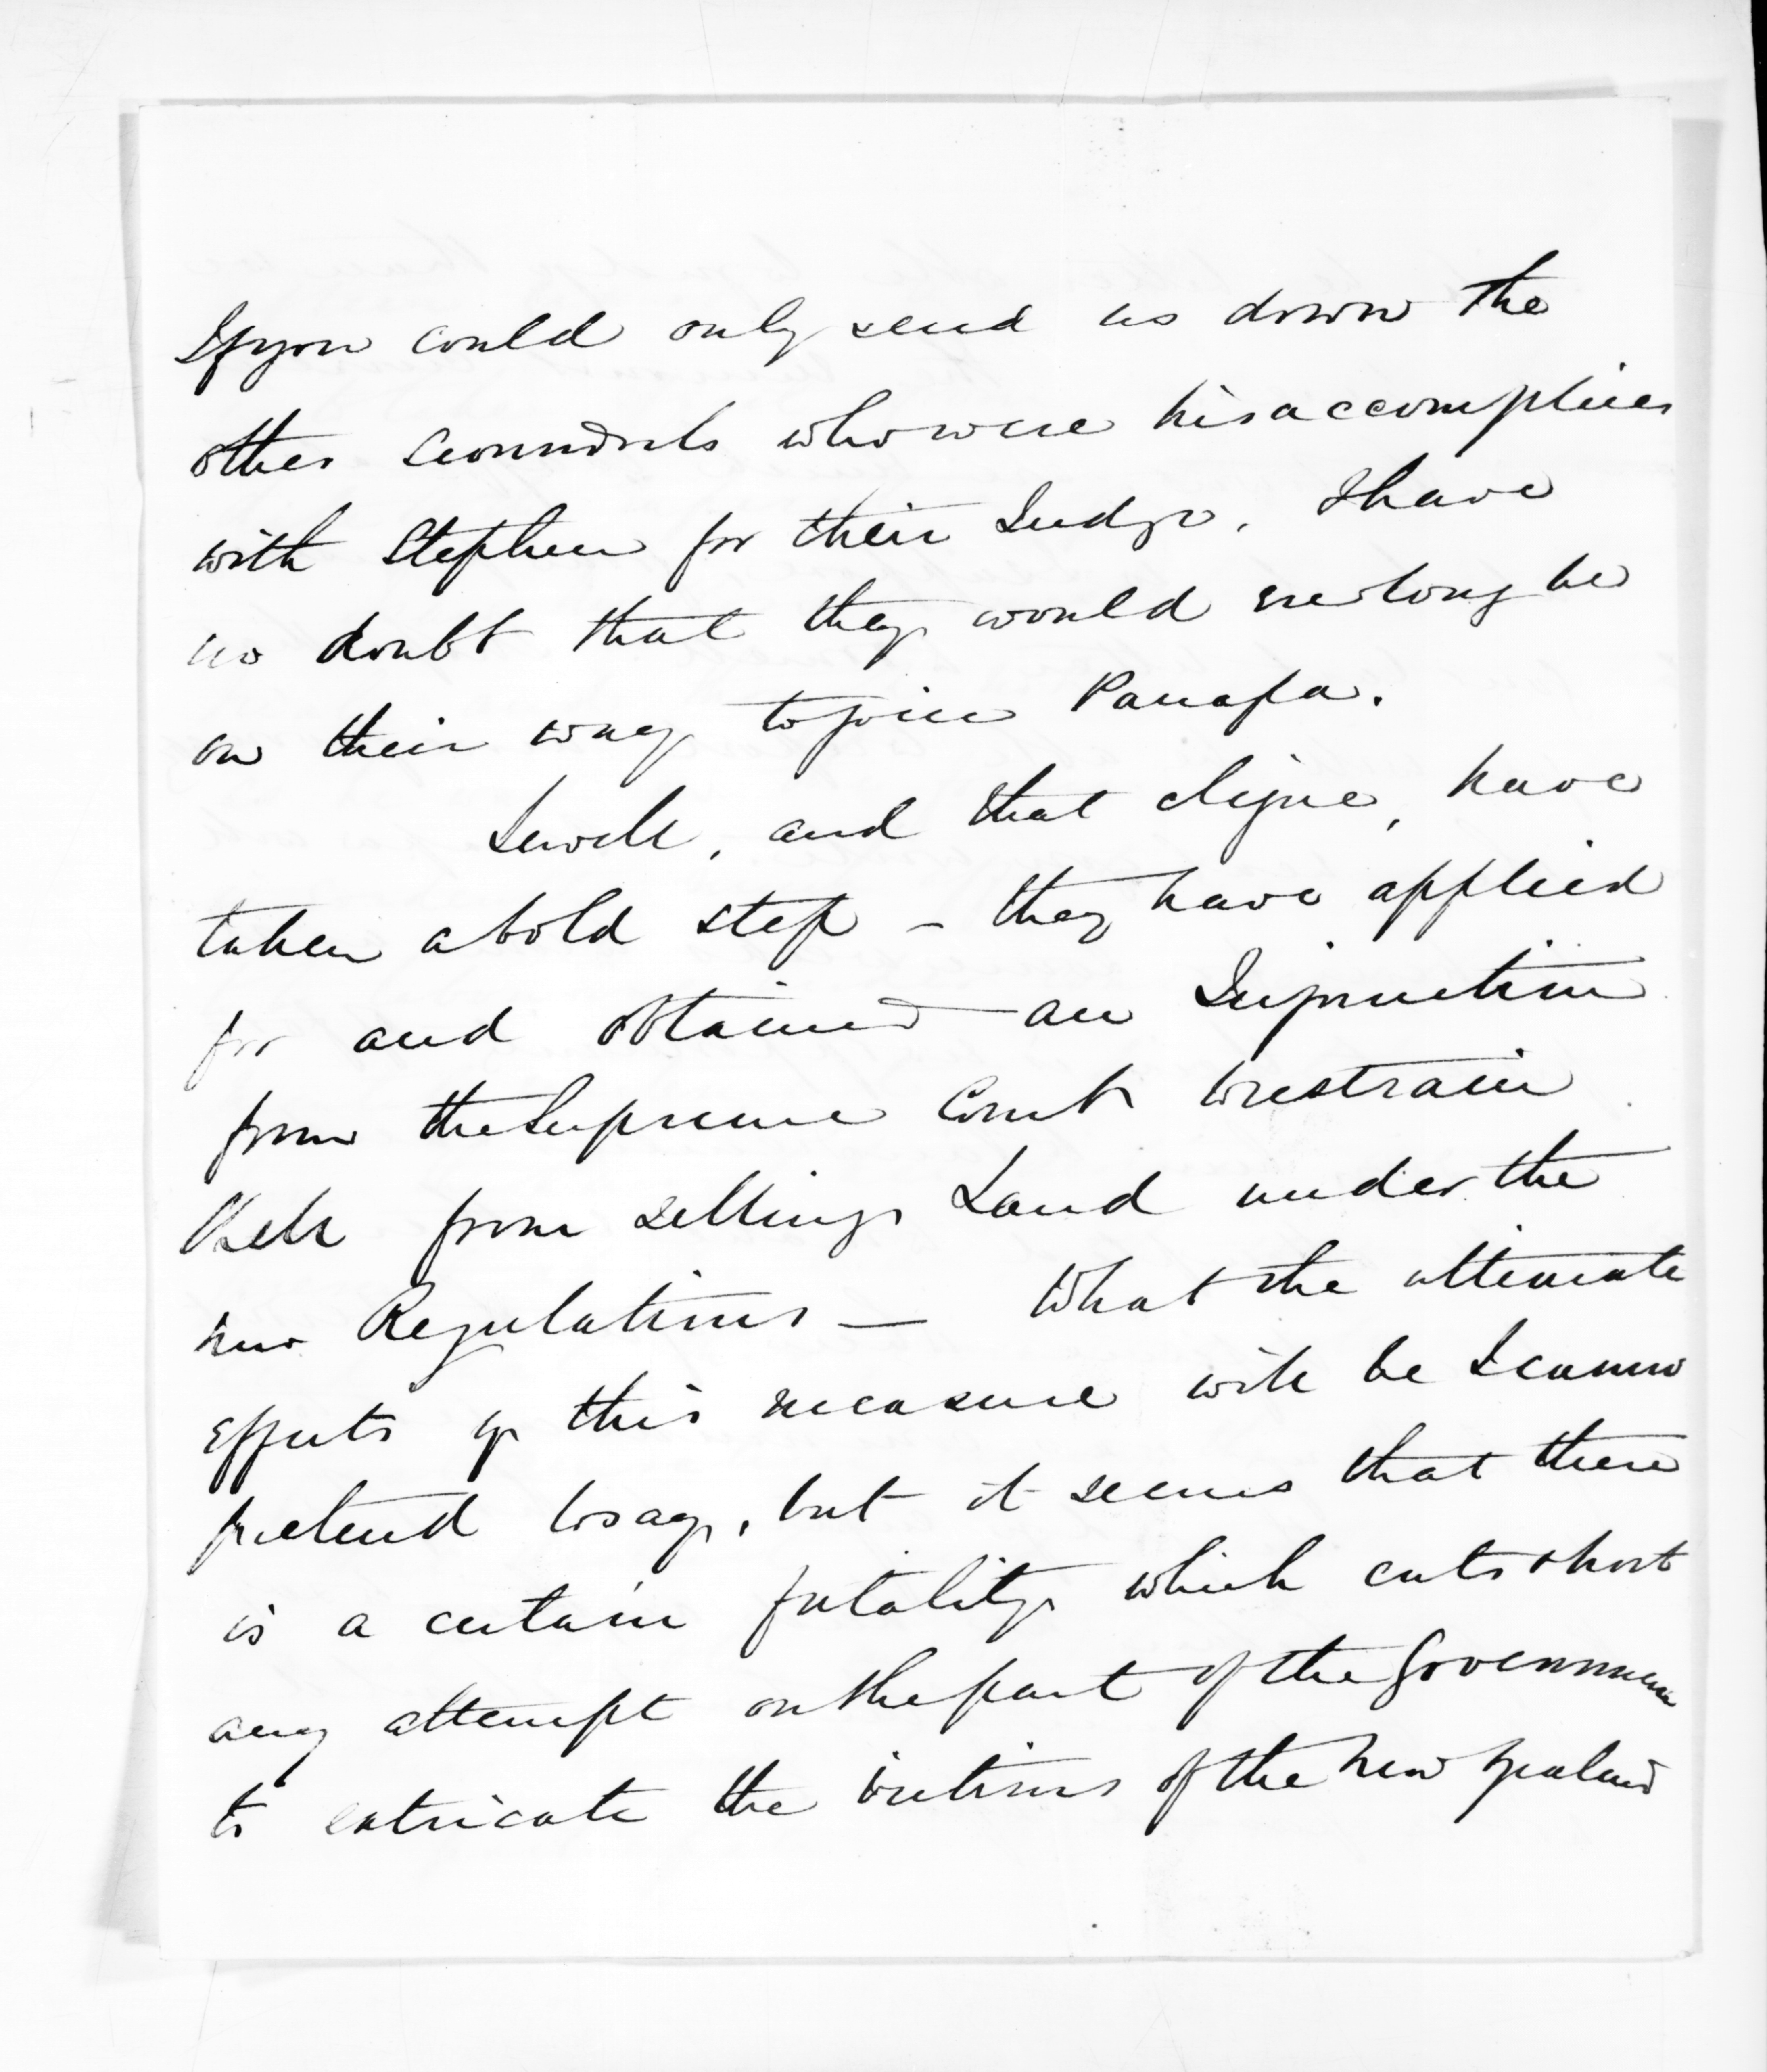 If you could only send us down the
other scoundrels who were his accomplices
with Stephen for their Judge. I have
no doubt that they would ere long be
on their way to join Panapa.
Sewell, and that clique, have
taken a bold step - they have applied
for and obtained an Injunction
from the Supreme Court to restrain
Bell from selling Land under the
new Regulations — What the ultimate
effects of this measure will be I cannot
pretend to say, but it seems that there
is a certain fatality which cuts short
any attempt on the part of the Government
to extricate the victims of the New Zealand